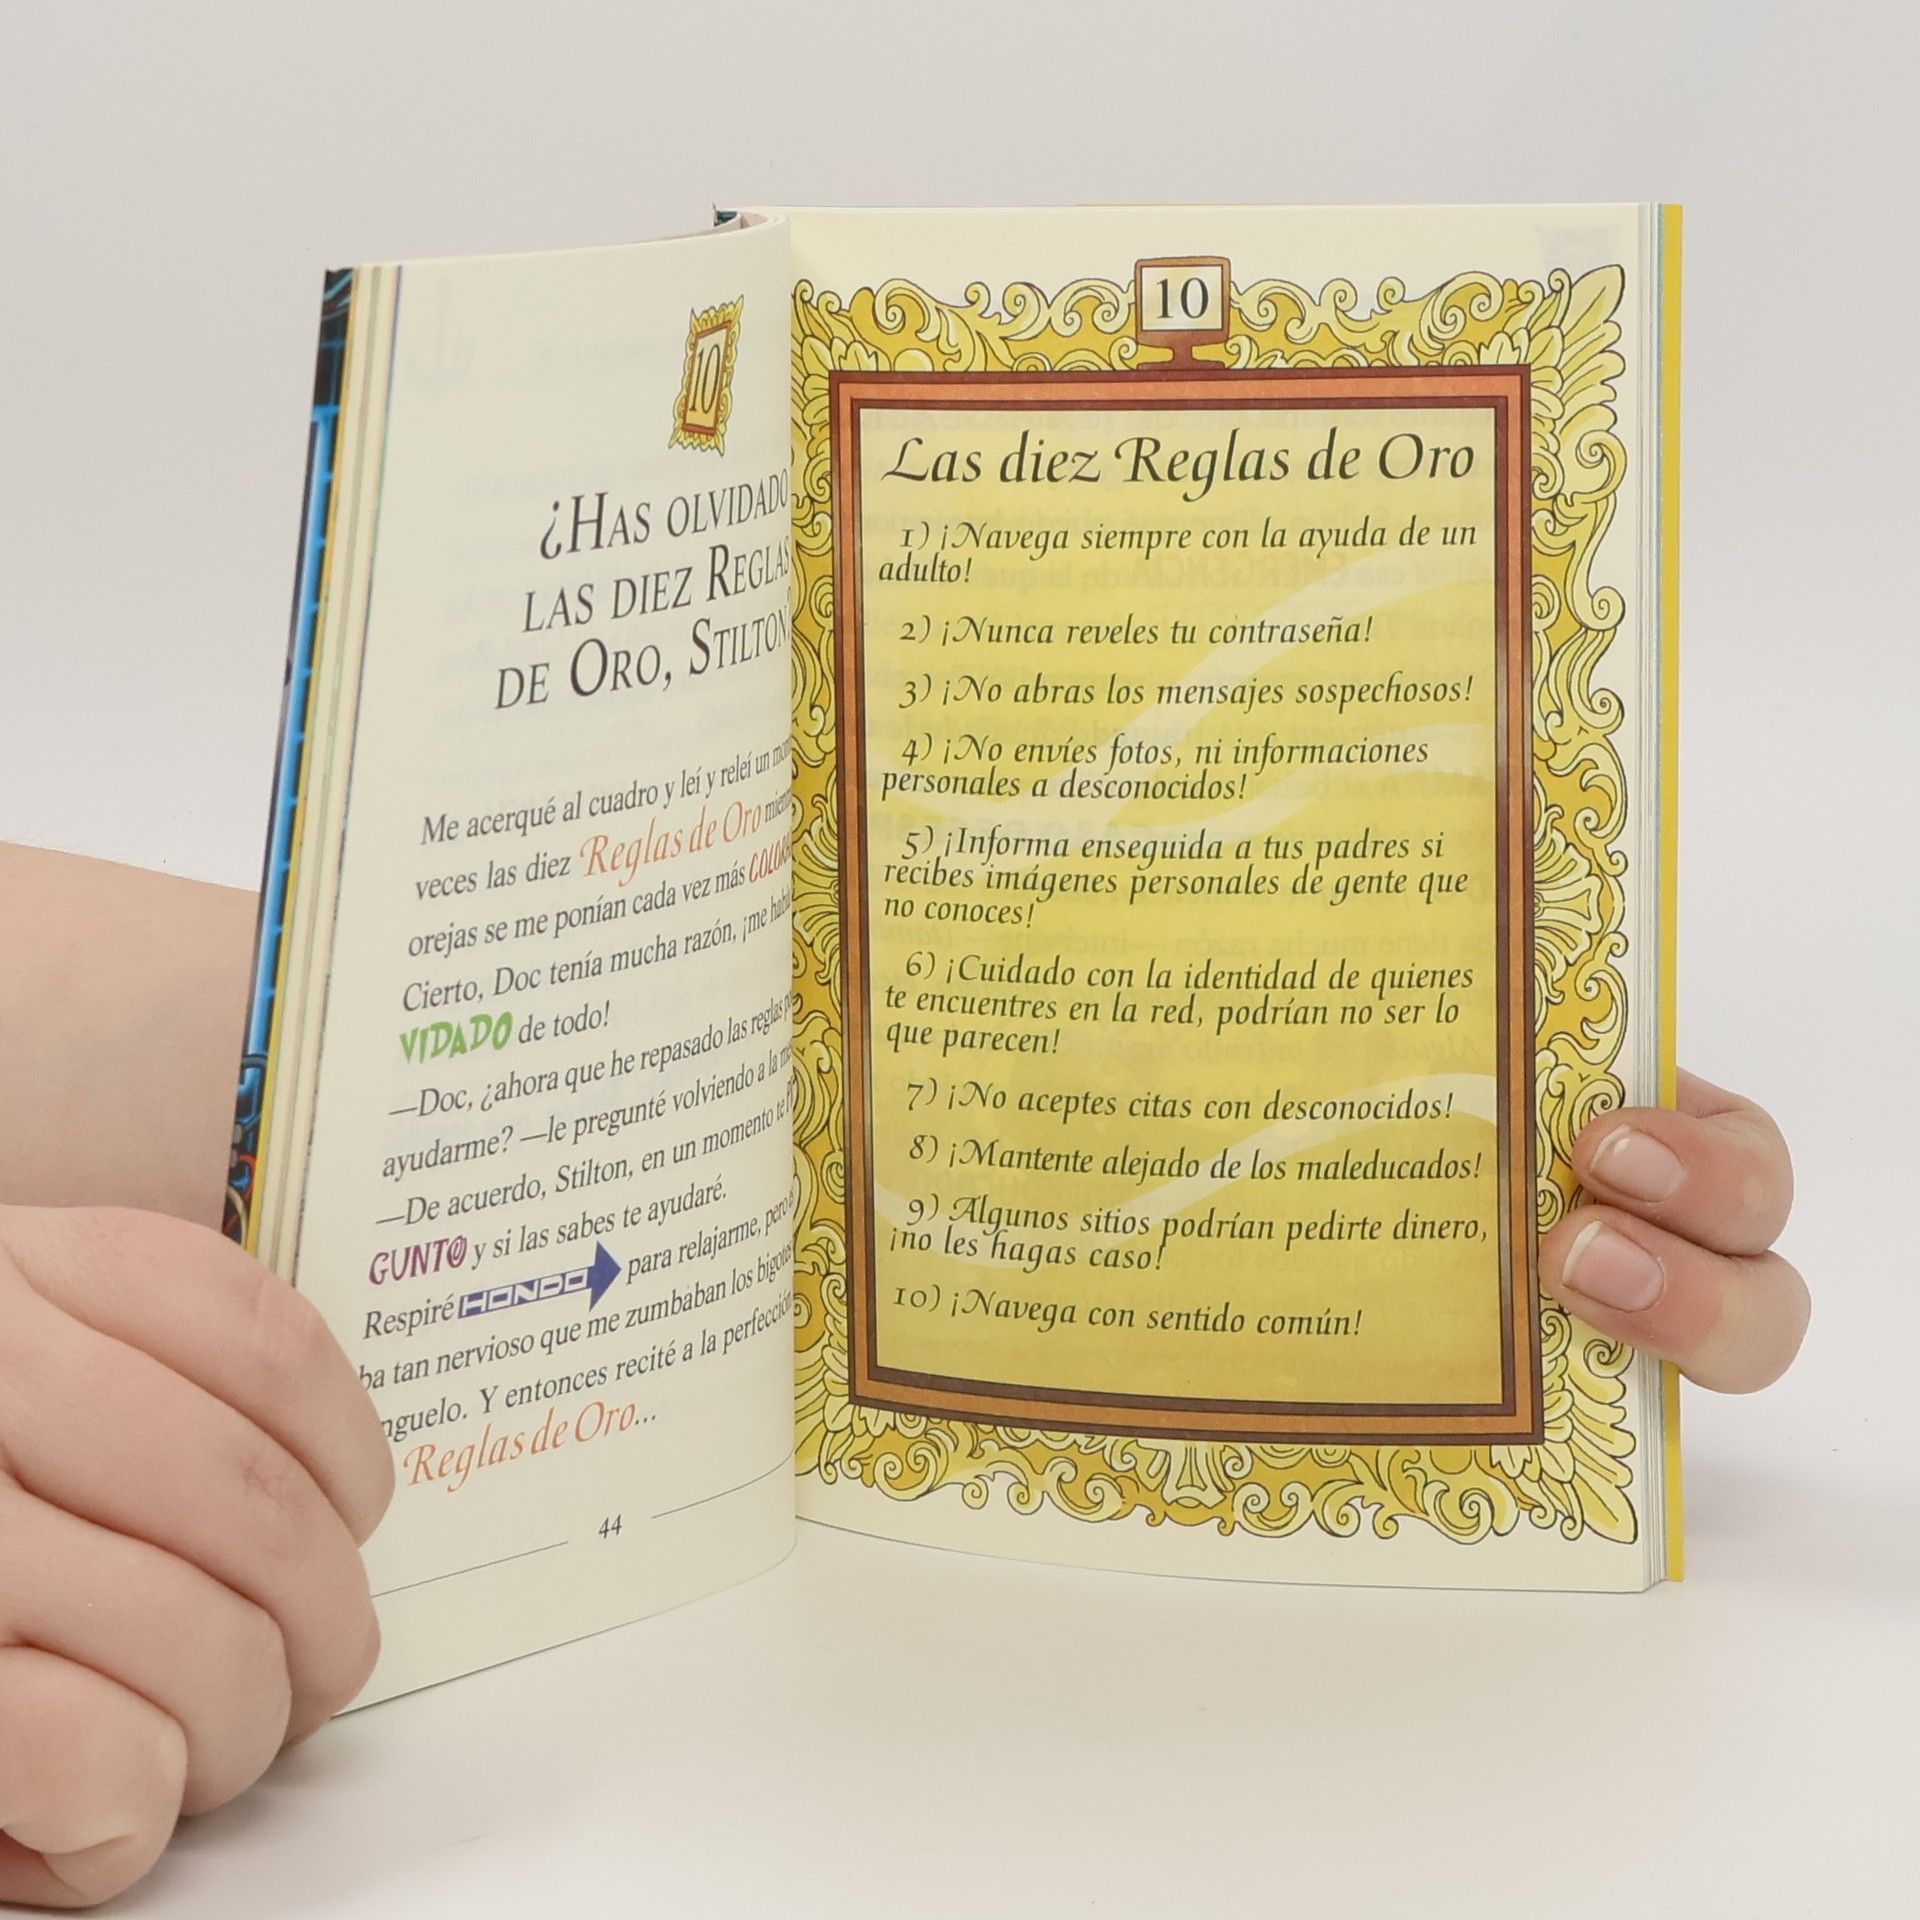 10
¿HAS OLVIDADO
LAS DIEZ REGLAS
DE ORO, STILTON?
Me acerqué al cuadro y leí y releí un
veces las diez Reglas de Oro
orejas se me ponían cada vez más
Cierto, Doc tenía mucha razón, ¡me
VIDADO de todo!
—Doc, ¿ahora que he repasado las reglas
ayudarme? —le pregunté volviendo a la
—De acuerdo, Stilton, en un momento te
GUNTO y si las sabes te ayudaré.
Respiré HONDO para relajarme, pero
ba tan nervioso que me zumbaban los bigotes
nguelo. Y entonces recité a la perfección
Reglas de Oro...
44
10
Las diez Reglas de Oro
1) ¡Navega siempre con la ayuda de un
adulto!
2) ¡Nunca reveles tu contraseña!
3) ¡No abras los mensajes sospechosos!
4) ¡No envíes fotos, ni informaciones
personales a desconocidos!
5) ¡Informa enseguida a tus padres si
recibes imágenes personales de gente que
no conoces!
6) ¡Cuidado con la identidad de quienes
te encuentres en la red, podrían no ser lo
que parecen!
7) ¡No aceptes citas con desconocidos!
8) ¡Mantente alejado de los maleducados!
9) Algunos sitios podrían pedirte dinero,
¡no les hagas caso!
10) ¡Navega con sentido común!